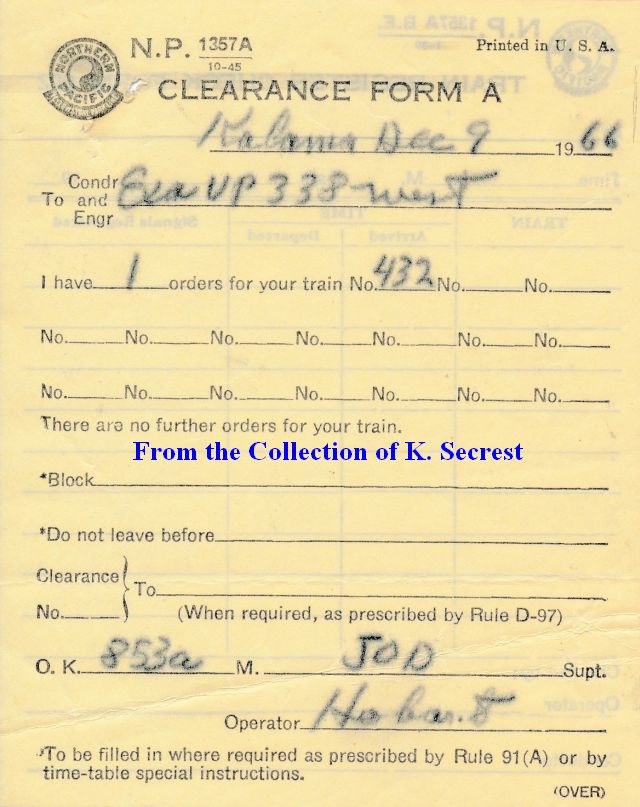 NORTHERN PACIFIC
N.P. 1357A
10-45
Printed in U. S. A.
CLEARANCE FORM A
Kalama Dec 9 1966
Condr
To and Exa UP 338 West
Engr
I have 1 orders for your train No. 432 No. No.
No. No. No. No. No. No. No.
No. No. No. No. No. No. No.
There are no further orders for your train.
From the Collection of K. Secrest
*Block
*Do not leave before
Clearance
To
No.
(When required, as prescribed by Rule D-97)
O. K. 853a M. JOD Supt.
Operator
*To be filled in where required as prescribed by Rule 91(A) or by
time-table special instructions.
(OVER)